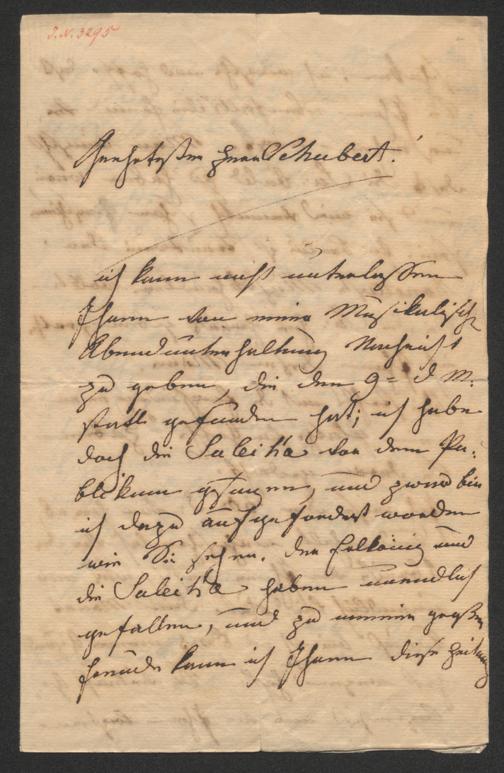 J.N. 3295
Geehrtester Herr Schubert!
ich kann nicht unterlassen
Ihnen von meiner Musikalischen
Abendunterhaltung Nachricht
zu geben, die den 9= d M.
statt gefunden hat; ich habe
doch die Suleika vor dem Pu-
blikum gesungen, und zwar bin
ich dazu aufgefordert worden
wie Sie sehen. der Erlkönig und
die Suleika haben unendlich
gefallen, und zu meiner großen
Freude kann ich Ihnen diese Zeitung